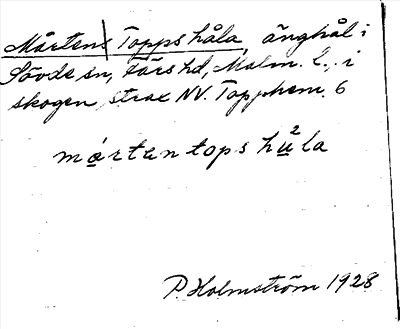 Mårtens Toppshåla, änghål i
Sövde sn, Färs hd, Malm. l., i
skogen strax NV. Topphem 6
mårtan tops hu²la
P. Holmström 1928